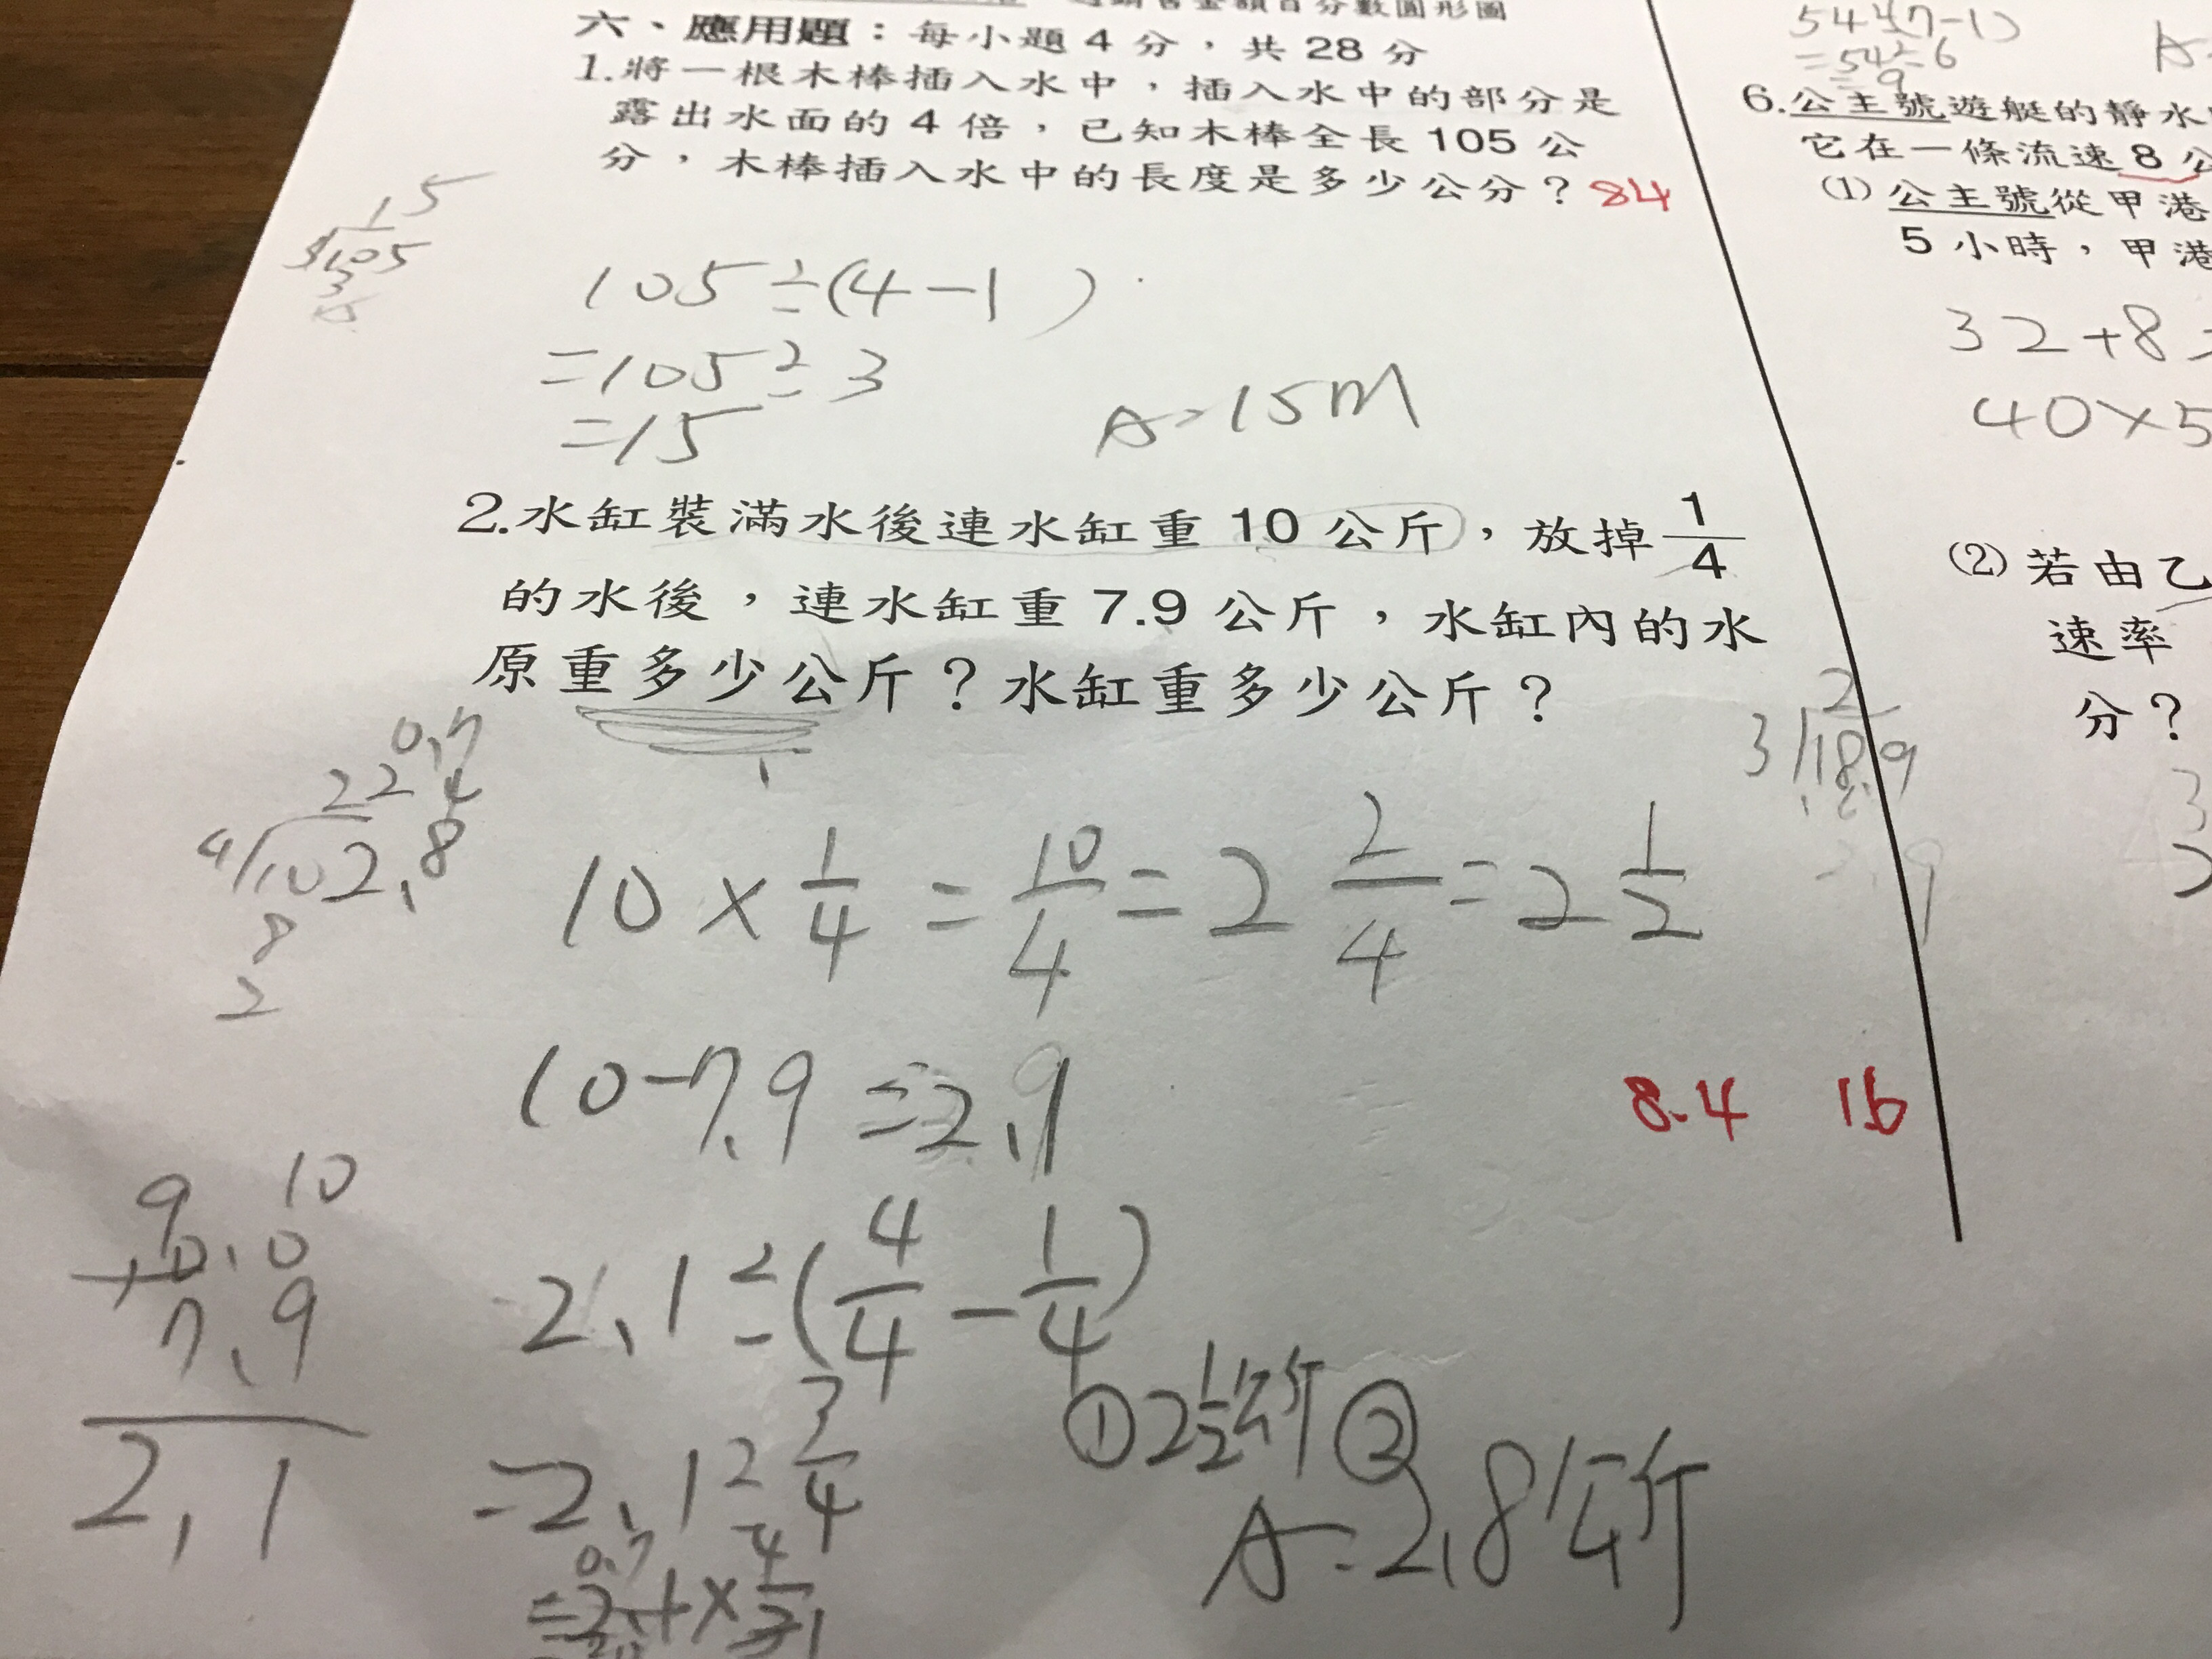 六、應用題：每小題 4 分，共 28 分
1.將一根木棒插入水中，插入水中的部分是
露出水面的 4 倍，已知木棒全長 105 公
分，木棒插入水中的長度是多少公分？84
105÷(4-1)
=105÷3
=15
A=15m
2.水缸裝滿水後連水缸重 10 公斤，放掉 1/4
的水後，連水缸重 7.9 公斤，水缸內的水
原重多少公斤？水缸重多少公斤？
10×1/4=10/4=2 2/4=2 1/2
10-7.9=2.1
8.4 1.6
9 10
10.0
7.9
2.1
2.1÷(4/4-1/4)
=2.1÷3/4
①2 1/2公斤②
A=2.8公斤
54÷(7-1)
=54÷6
=9
6.公主號遊艇的靜水
它在一條流速 8 公
(1) 公主號從甲港
5 小時，甲港
32+8
40×5
(2) 若由乙
速率
分？